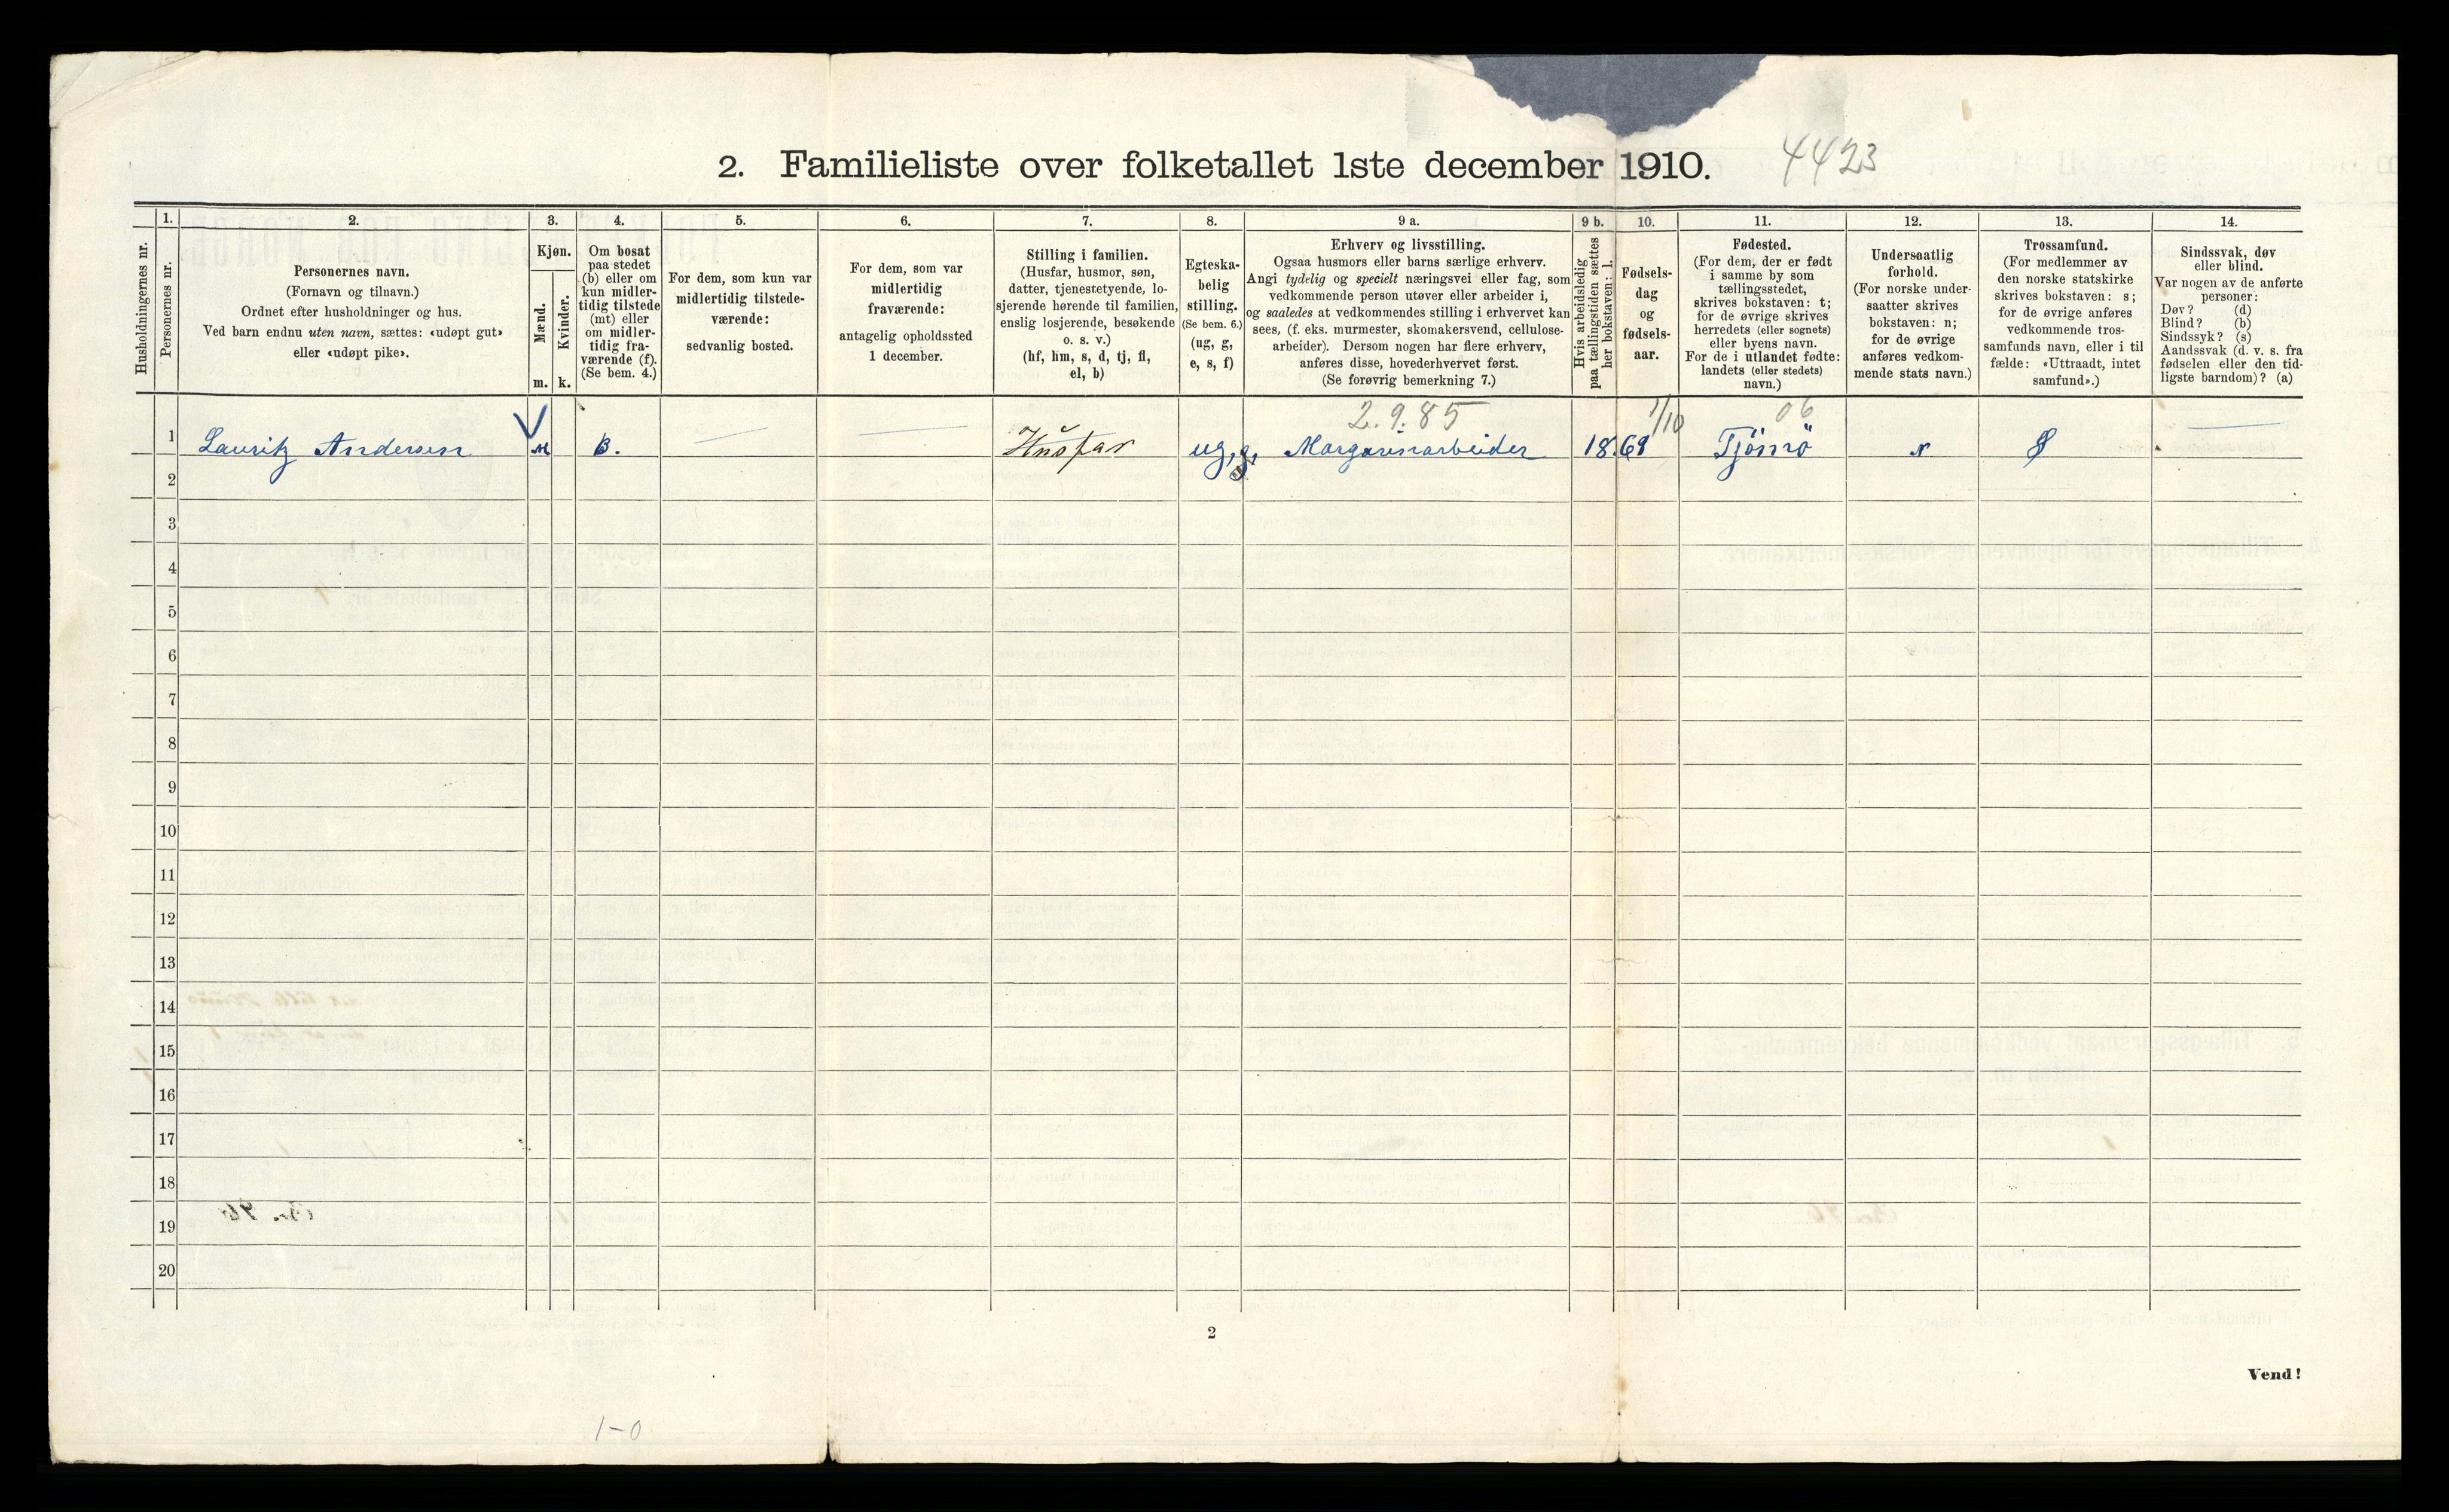 2. Familieliste over folketallet 1ste december 1910.
4423
Husholdningernes nr.
1.
Personernes nr.
2.
Personernes navn.
(Fornavn og tilnavn.)
Ordnet efter husholdninger og hus.
Ved barn endnu uten navn, sættes: «udøpt gut»
eller «udøpt pike».
3.
Kjøn.
Mænd.
m.
Kvinder.
k.
4.
Om bosat
paa stedet
(b) eller om
kun midler-
tidig tilstede
(mt) eller
om midler-
tidig fra-
værende (f).
(Se bem. 4.)
5.
For dem, som kun var
midlertidig tilstede-
værende:
sedvanlig bosted.
6.
For dem, som var
midlertidig
fraværende:
antagelig opholdssted
1 december.
7.
Stilling i familien.
(Husfar, husmor, søn,
datter, tjenestetyende, lo-
sjerende hørende til familien,
enslig losjerende, besøkende
o. s. v.)
(hf, hm, s, d, tj, fl,
el, b)
8.
Egteska-
belig
stilling.
(Se bem. 6.)
(ug, g,
e, s, f)
9 a.
Erhverv og livsstilling.
Ogsaa husmors eller barns særlige erhverv.
Angi tydelig og specielt næringsvei eller fag, som
vedkommende person utøver eller arbeider i,
og saaledes at vedkommendes stilling i erhvervet kan
sees, (f. eks. murmester, skomakersvend, cellulose-
arbeider). Dersom nogen har flere erhverv,
anføres disse, hovederhvervet først.
(Se forøvrig bemerkning 7.)
9 b.
Hvis arbeidsledig
paa tællingstiden sættes
her bokstaven: l.
10.
Fødsels-
dag
og
fødsels-
aar.
11.
Fødested.
(For dem, der er født
i samme by som
tællingsstedet,
skrives bokstaven: t;
for de øvrige skrives
herredets (eller sognets)
eller byens navn.
For de i utlandet fødte:
landets (eller stedets)
navn.)
12.
Undersaatlig
forhold.
(For norske under-
saatter skrives
bokstaven: n;
for de øvrige
anføres vedkom-
mende stats navn.)
13.
Trossamfund.
(For medlemmer av
den norske statskirke
skrives bokstaven: s;
for de øvrige anføres
vedkommende tros-
samfunds navn, eller i til
fælde: «Uttraadt, intet
samfund».)
14.
Sindssvak, døv
eller blind.
Var nogen av de anførte
personer:
Døv? (d)
Blind? (b)
Sindssyk? (s)
Aandssvak (d. v. s. fra
fødselen eller den tid-
ligste barndom)? (a)
2.9.85 1/10 06
1 Lauritz Andersen M B. — — Husfar ug, g, Margarinarbeider 18.68 Tjömö N S —
2
3
4
5
6
7
8
9
10
11
12
13
14
15
16
17
18
19
20
2
Vend!
1-0